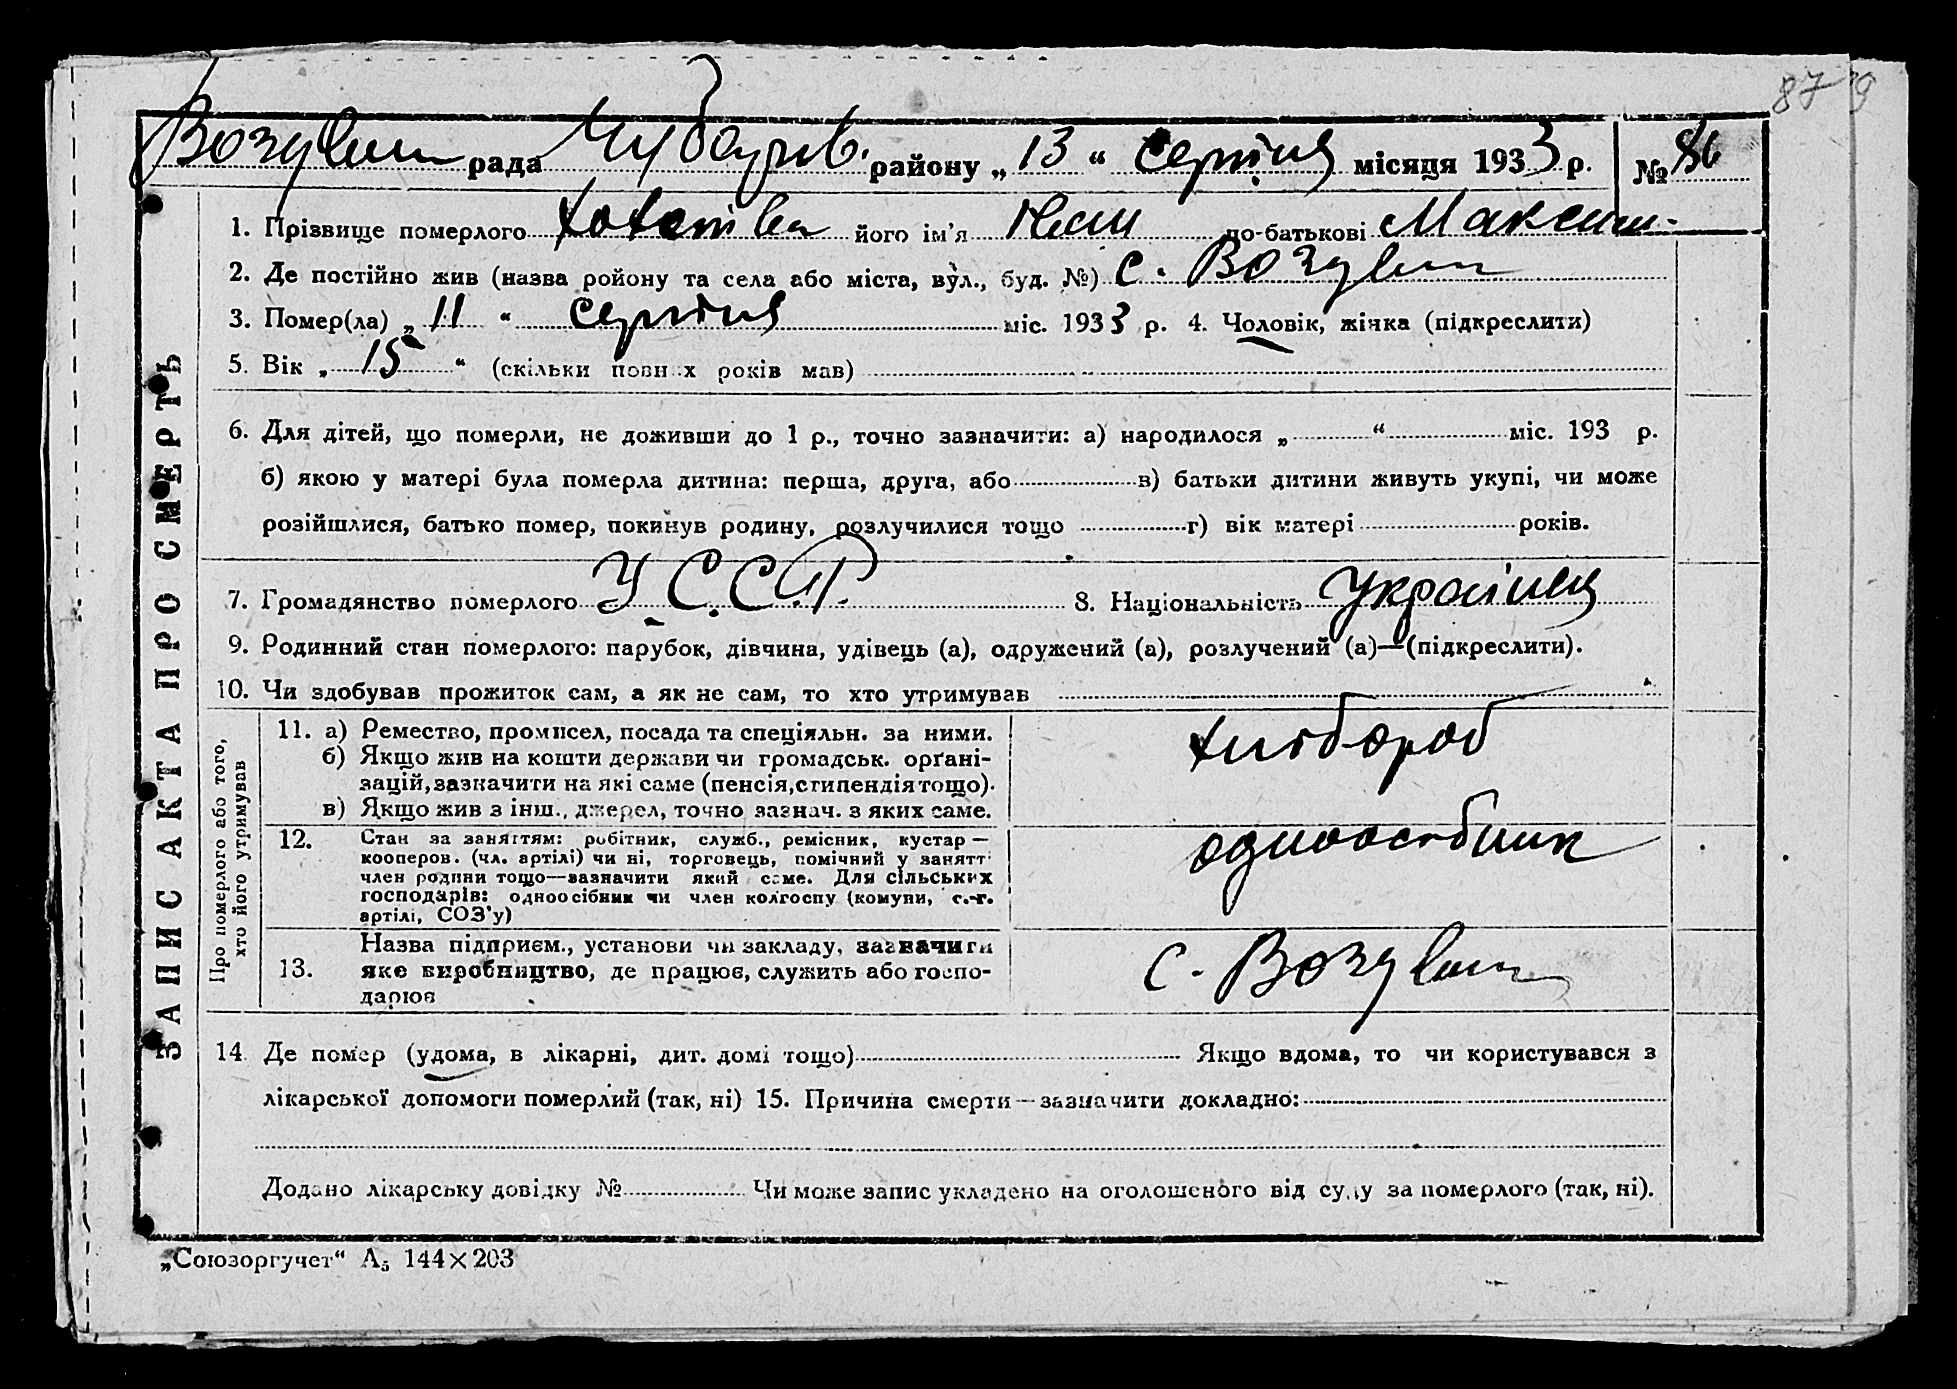 87 9
рада Чубарів. району „13“ серпня місяця 1933 р. №
1. Прізвище померлого його ім'я по-батькові Максим.
2. Де постійно жив (назва ройону та села або міста, вул., буд. №) с.
3. Помер(ла) „11“ серпня міс. 1933 р. 4. Чоловік, жінка (підкреслити)
5. Вік „15“ (скільки повних років мав)
6. Для дітей, що померли, не доживши до 1 р., точно зазначити: а) народилося „ “ міс. 193 р.
б) якою у матері була померла дитина: перша, друга, або в) батьки дитини живуть укупі, чи може
розійшлися, батько помер, покинув родину, розлучилися тощо г) вік матері років.
7. Громадянство померлого У.С.С.Р. 8. Національність Українец
9. Родинний стан померлого: парубок, дівчина, удівець (а), одружений (а), розлучений (а)—(підкреслити).
10. Чи здобував прожиток сам, а як не сам, то хто утримував
ЗАПИС АКТА ПРО СМЕРТЬ
Про померлого або того,
хто його утримував
11. а) Ремество, промисел, посада та спеціяльн. за ними.
б) Якщо жив на кошти держави чи громадськ. орґані-
зацій, зазначити на які саме (пенсія, стипендія тощо).
в) Якщо жив з інш., джерел, точно зазнач. з яких саме.
хлібороб
12. Стан за заняттям: робітник, служб., ремісник, кустар—
кооперов. (чл. артілі) чи ні, торговець, помічний у занятт
член родини тощо—зазначити який саме. Для сільських
господарів: одноосібник чи член колгоспу (комуни, с.-г.
артілі, СОЗ'у)
одноосібник
13. Назва підприєм., установи чи закладу, зазначити
яке виробництво, де працює, служить або госпо-
дарює
с.
14. Де помер (удома, в лікарні, дит. домі тощо) Якщо вдома, то чи користувався з
лікарської допомоги померлий (так, ні) 15. Причина смерти—зазначити докладно:
Додано лікарську довідку № Чи може запис укладено на оголошеного від суду за померлого (так, ні).
„Союзоргучет“ А₅ 144×203